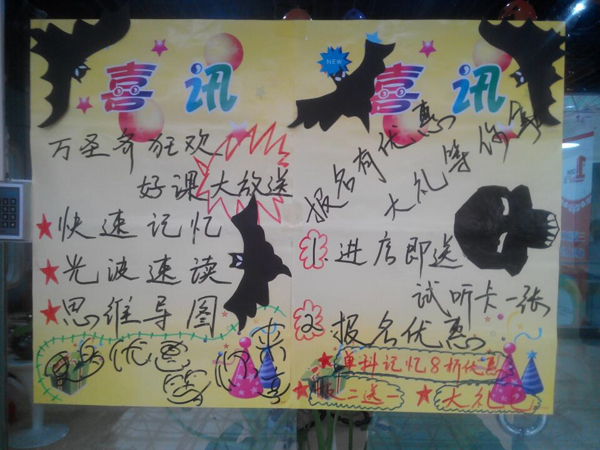 喜讯
万圣奇狂欢
好课大放送
★快速记忆
★光波速读
★思维导图
优惠
NEW
喜讯
报名有优惠
大礼等你拿
1.进店即送
试听卡一张
2.报名优惠
★单科记忆8折优惠
二送一 ★大礼